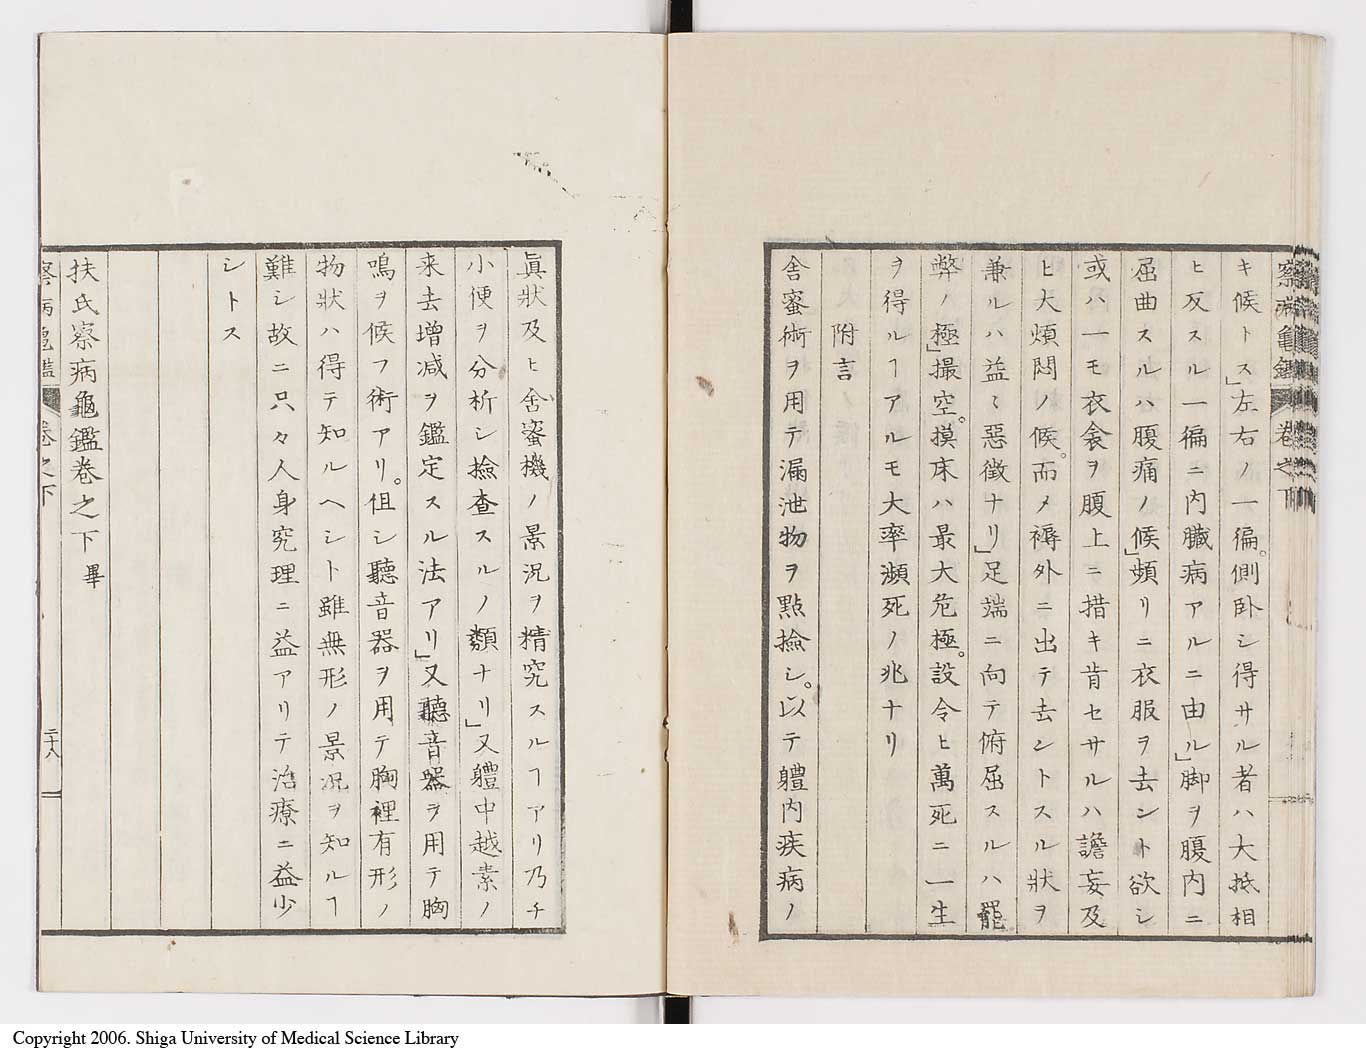 察病龜鑑 卷之下
キ候トス」左右ノ一徧。側卧シ得サル者ハ大抵相
ヒ反スル一徧ニ内臓病アルニ由ル」脚ヲ腹内ニ
屈曲スルハ腹痛ノ候」頻リニ衣服ヲ去ント欲シ
或ハ一モ衣衾ヲ腹上ニ措キ肯セサルハ譫妄及
ヒ大煩悶ノ候。而メ褥外ニ出テ去ントスル状ヲ
兼ルハ益〻惡徴ナリ」足端ニ向テ俯屈スルハ罷
弊ノ極」撮空。摸床ハ最大危極。設令ヒ萬死ニ一生
ヲ得ルヿアルモ大率瀕死ノ兆ナリ
附言
舎蜜術ヲ用テ漏泄物ヲ點撿シ。以テ軆内疾病ノ
眞狀及ヒ舎蜜機ノ景况ヲ精究スルヿアリ乃チ
小便ヲ分析シ撿査スルノ類ナリ」又軆中越素ノ
来去増减ヲ鑑定スル法アリ」又聽音器ヲ用テ胸
鳴ヲ候フ術アリ。但シ聽音器ヲ用テ胸裡有形ノ
物狀ハ得テ知ルヘシト雖無形ノ景况ヲ知ルヿ
難シ故ニ只々人身究理ニ益アリテ治療ニ益少
シトス
扶氏察病龜鑑卷之下畢
察病龜鑑 卷之下 二十八
Copyright 2006. Shiga University of Medical Science Library